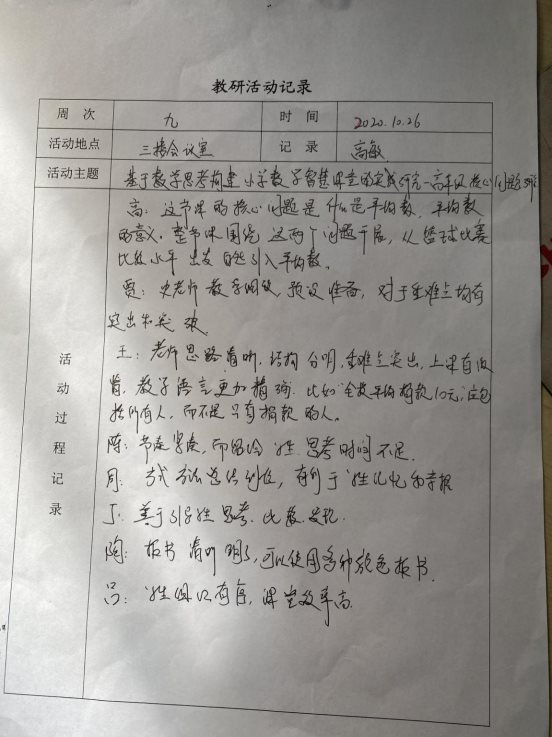 教研活动记录
周 次 九 时 间 2020.10.26
活动地点 三楼会议室 记 录 高敏
活动主题 基于数学思考构建小学数学智慧课堂的实践研究—高年级核心问题
活动过程记录
高: 这节课的核心问题是什么是平均数, 平均数
的意义. 整节课围绕这两个问题开展, 从篮球比赛
比较水平出发自然引入平均数.
贾: 史老师教学细致, 预设准备, 对于重难点均有
突出和突破
王: 老师思路清晰, 结构分明, 重难点突出, 上课有
教学语言更加精确. 比如“全校平均捐款10元”, 应包
括所有人, 而不是只有捐款的人.
陈: 节奏紧凑, 而留给生思考时间不足.
周: 方式方法总结到位, 有利于生记忆和掌握
丁: 善于引导生思考. 比较. 发现.
陶: 板书清晰明了, 可以使用多种颜色板书.
吕: 生组织有序, 课堂效率高.